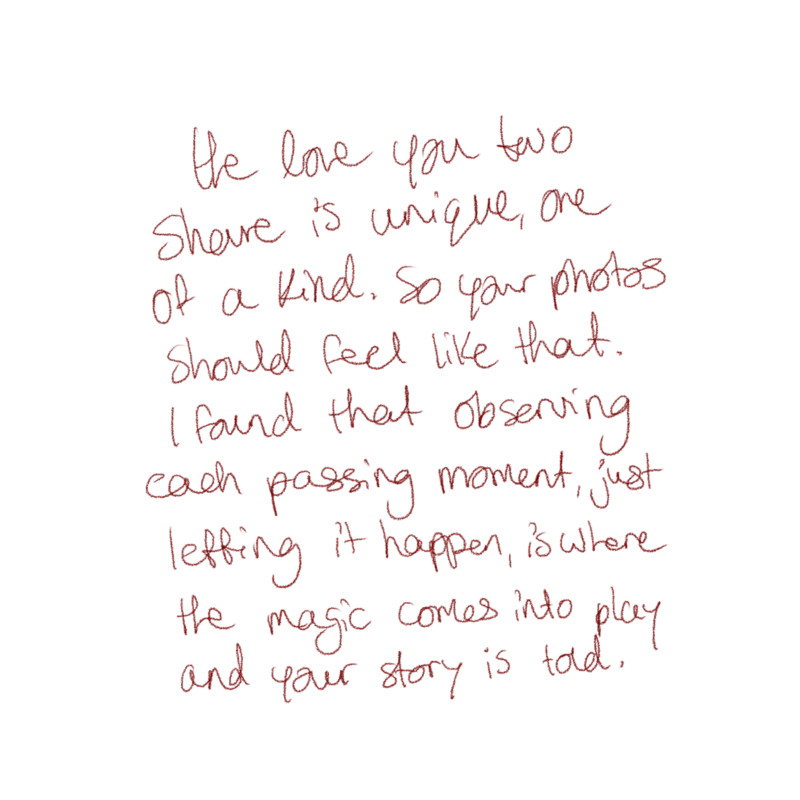 the love you two
share is unique, one
of a kind. So your photos
should feel like that.
I found that observing
each passing moment, just
letting it happen, is where
the magic comes into play
and your story is told.